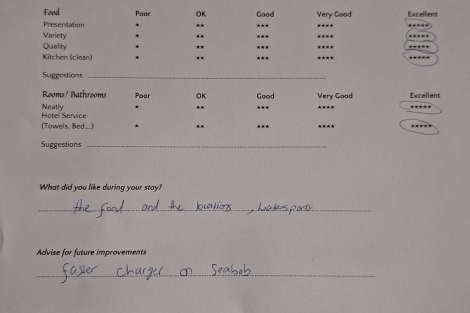 Food Poor OK Good Very Good Excellent
Presentation * ** *** **** *****
Variety * ** *** **** *****
Quality * ** *** **** *****
Kitchen (clean) * ** *** **** *****
Suggestions
Rooms / Bathrooms Poor OK Good Very Good Excellent
Neatly * ** *** **** *****
Hotel Service
(Towels, Bed...) * ** *** **** *****
Suggestions
What did you like during your stay?
the food and the locations, watersports
Advise for future improvements
faster charger on Seabob